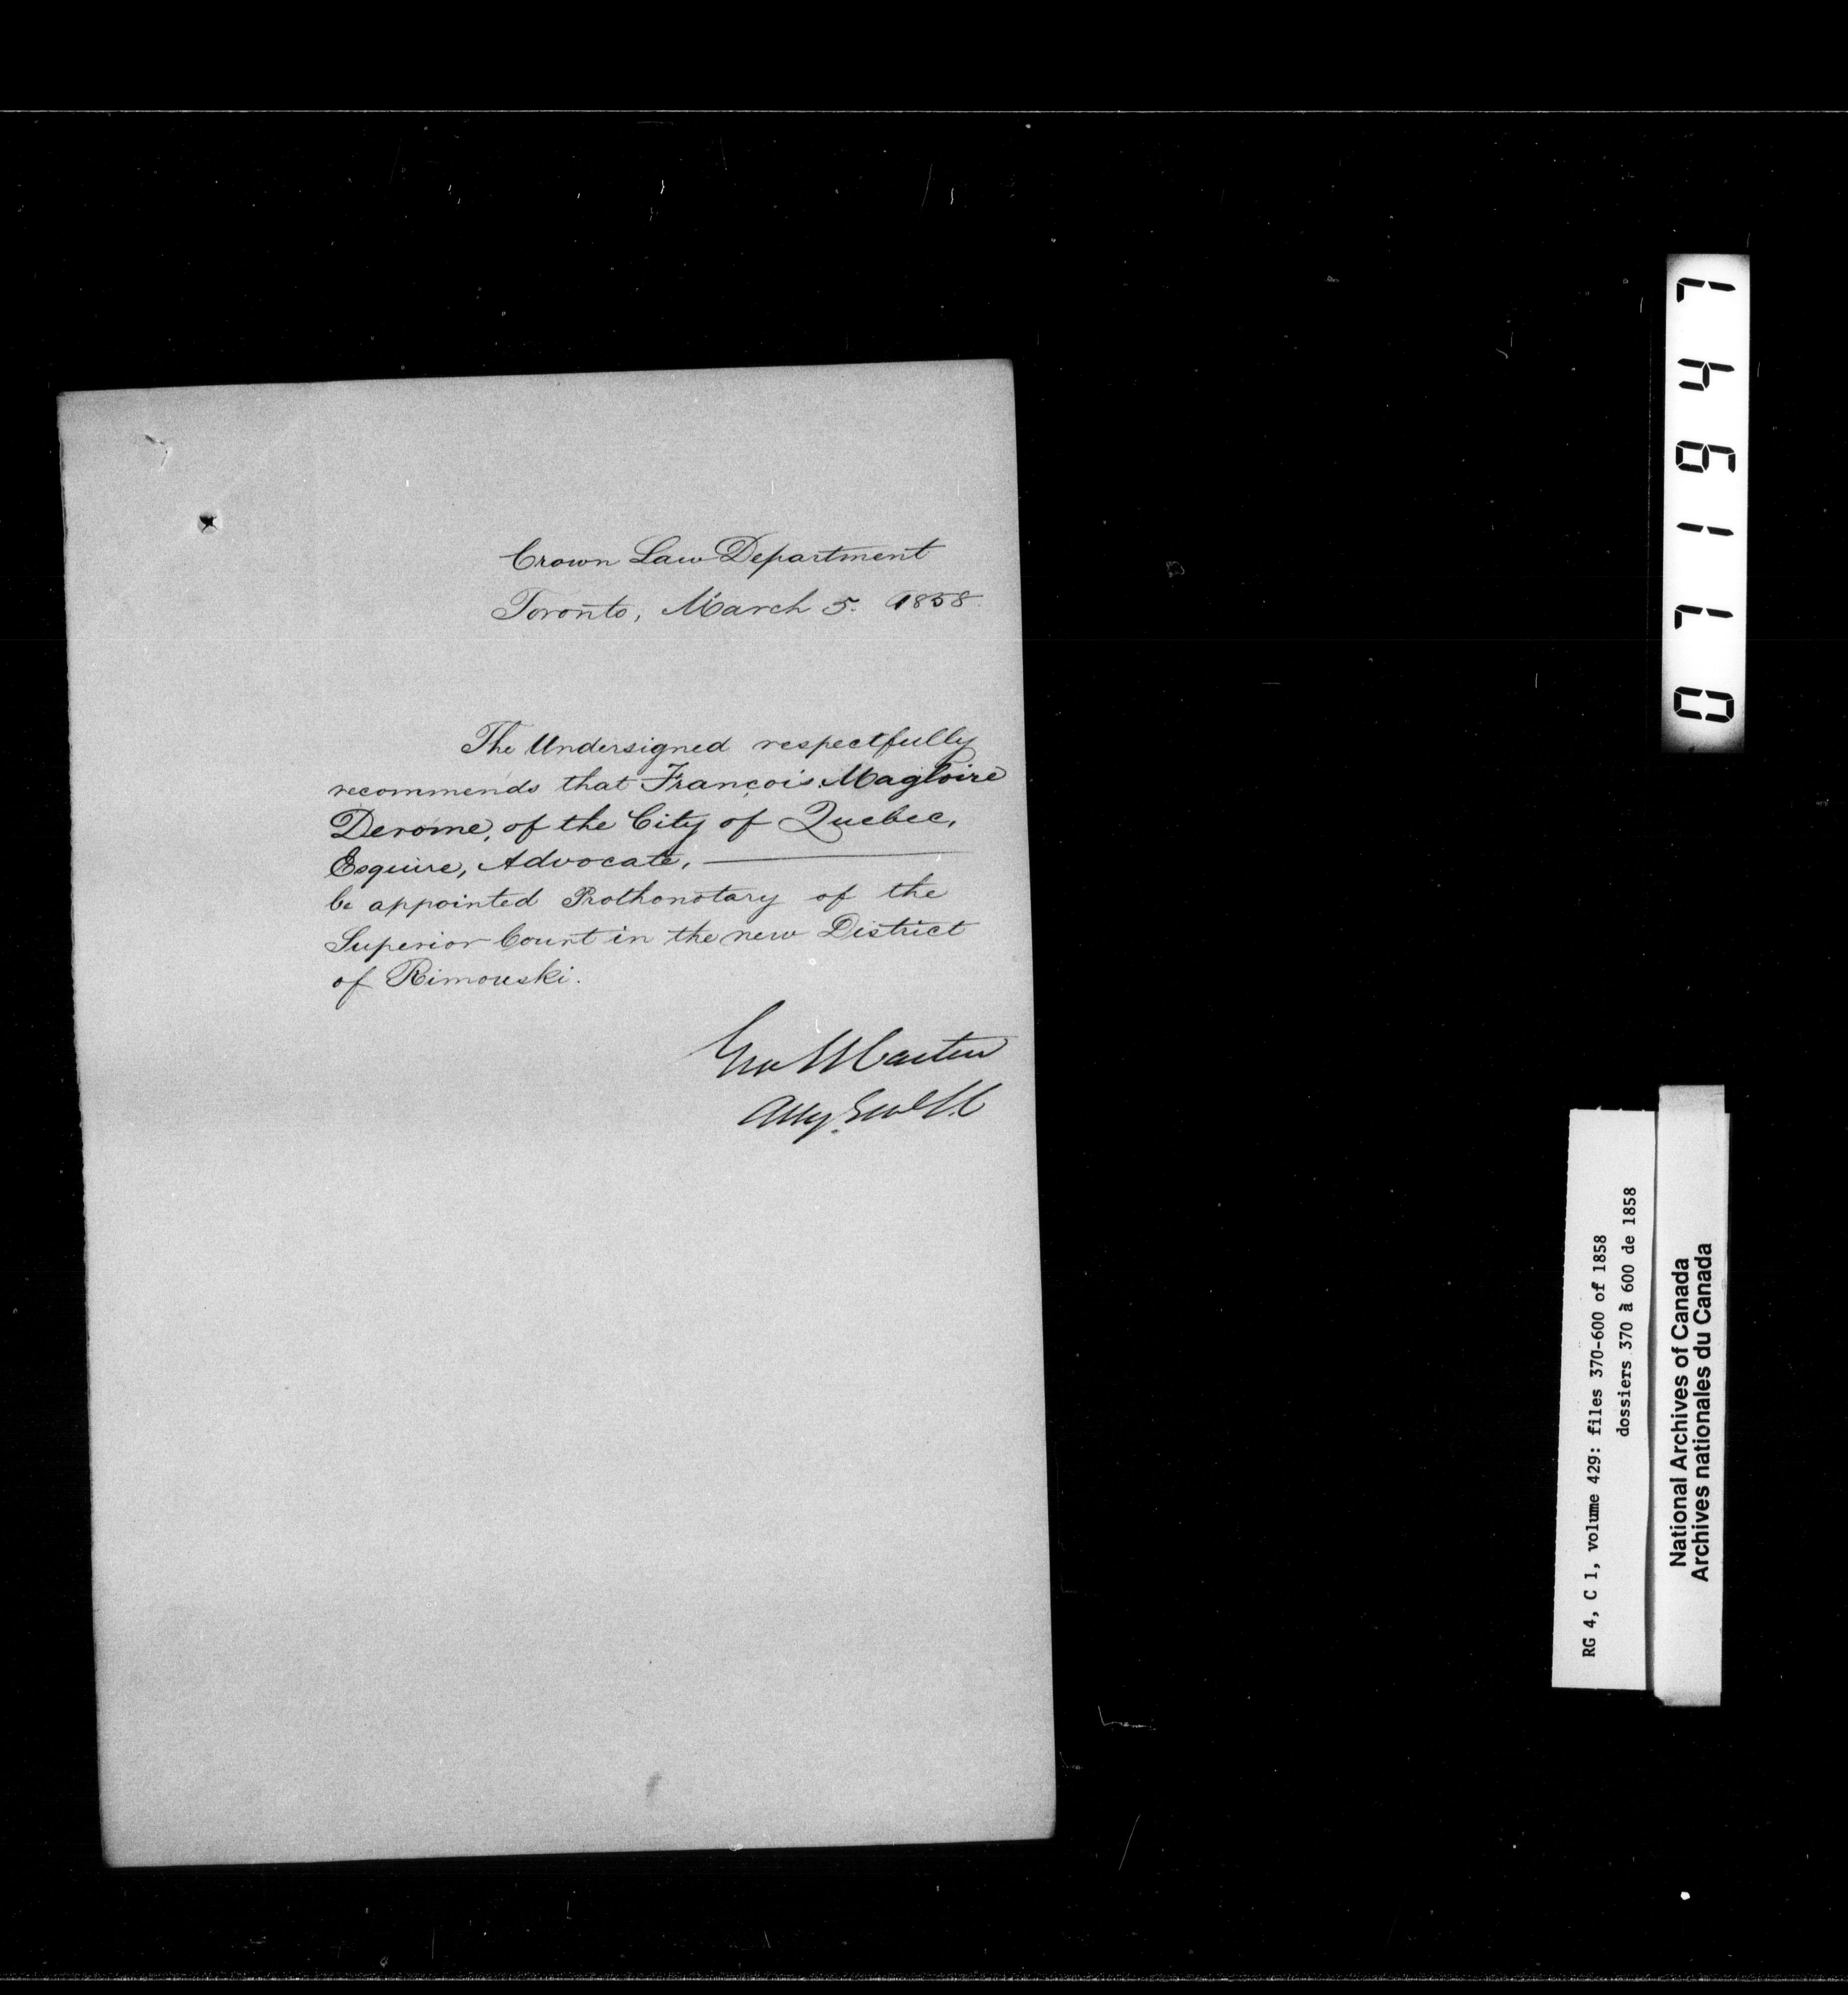 Crown Law Department
Toronto, March 5. 1858.
The Undersigned respectfully
recommends that François Magloire
Derome, of the City of Quebec,
Esquire, Advocate,
be appointed Prothonotary of the
Superior Court in the new District
of Rimouski.
Geo E Cartier
Atty. Genl L.C
RG 4, C 1, volume 429: files 370-600 of 1858
dossiers 370 à 600 de 1858
National Archives of Canada
Archives nationales du Canada